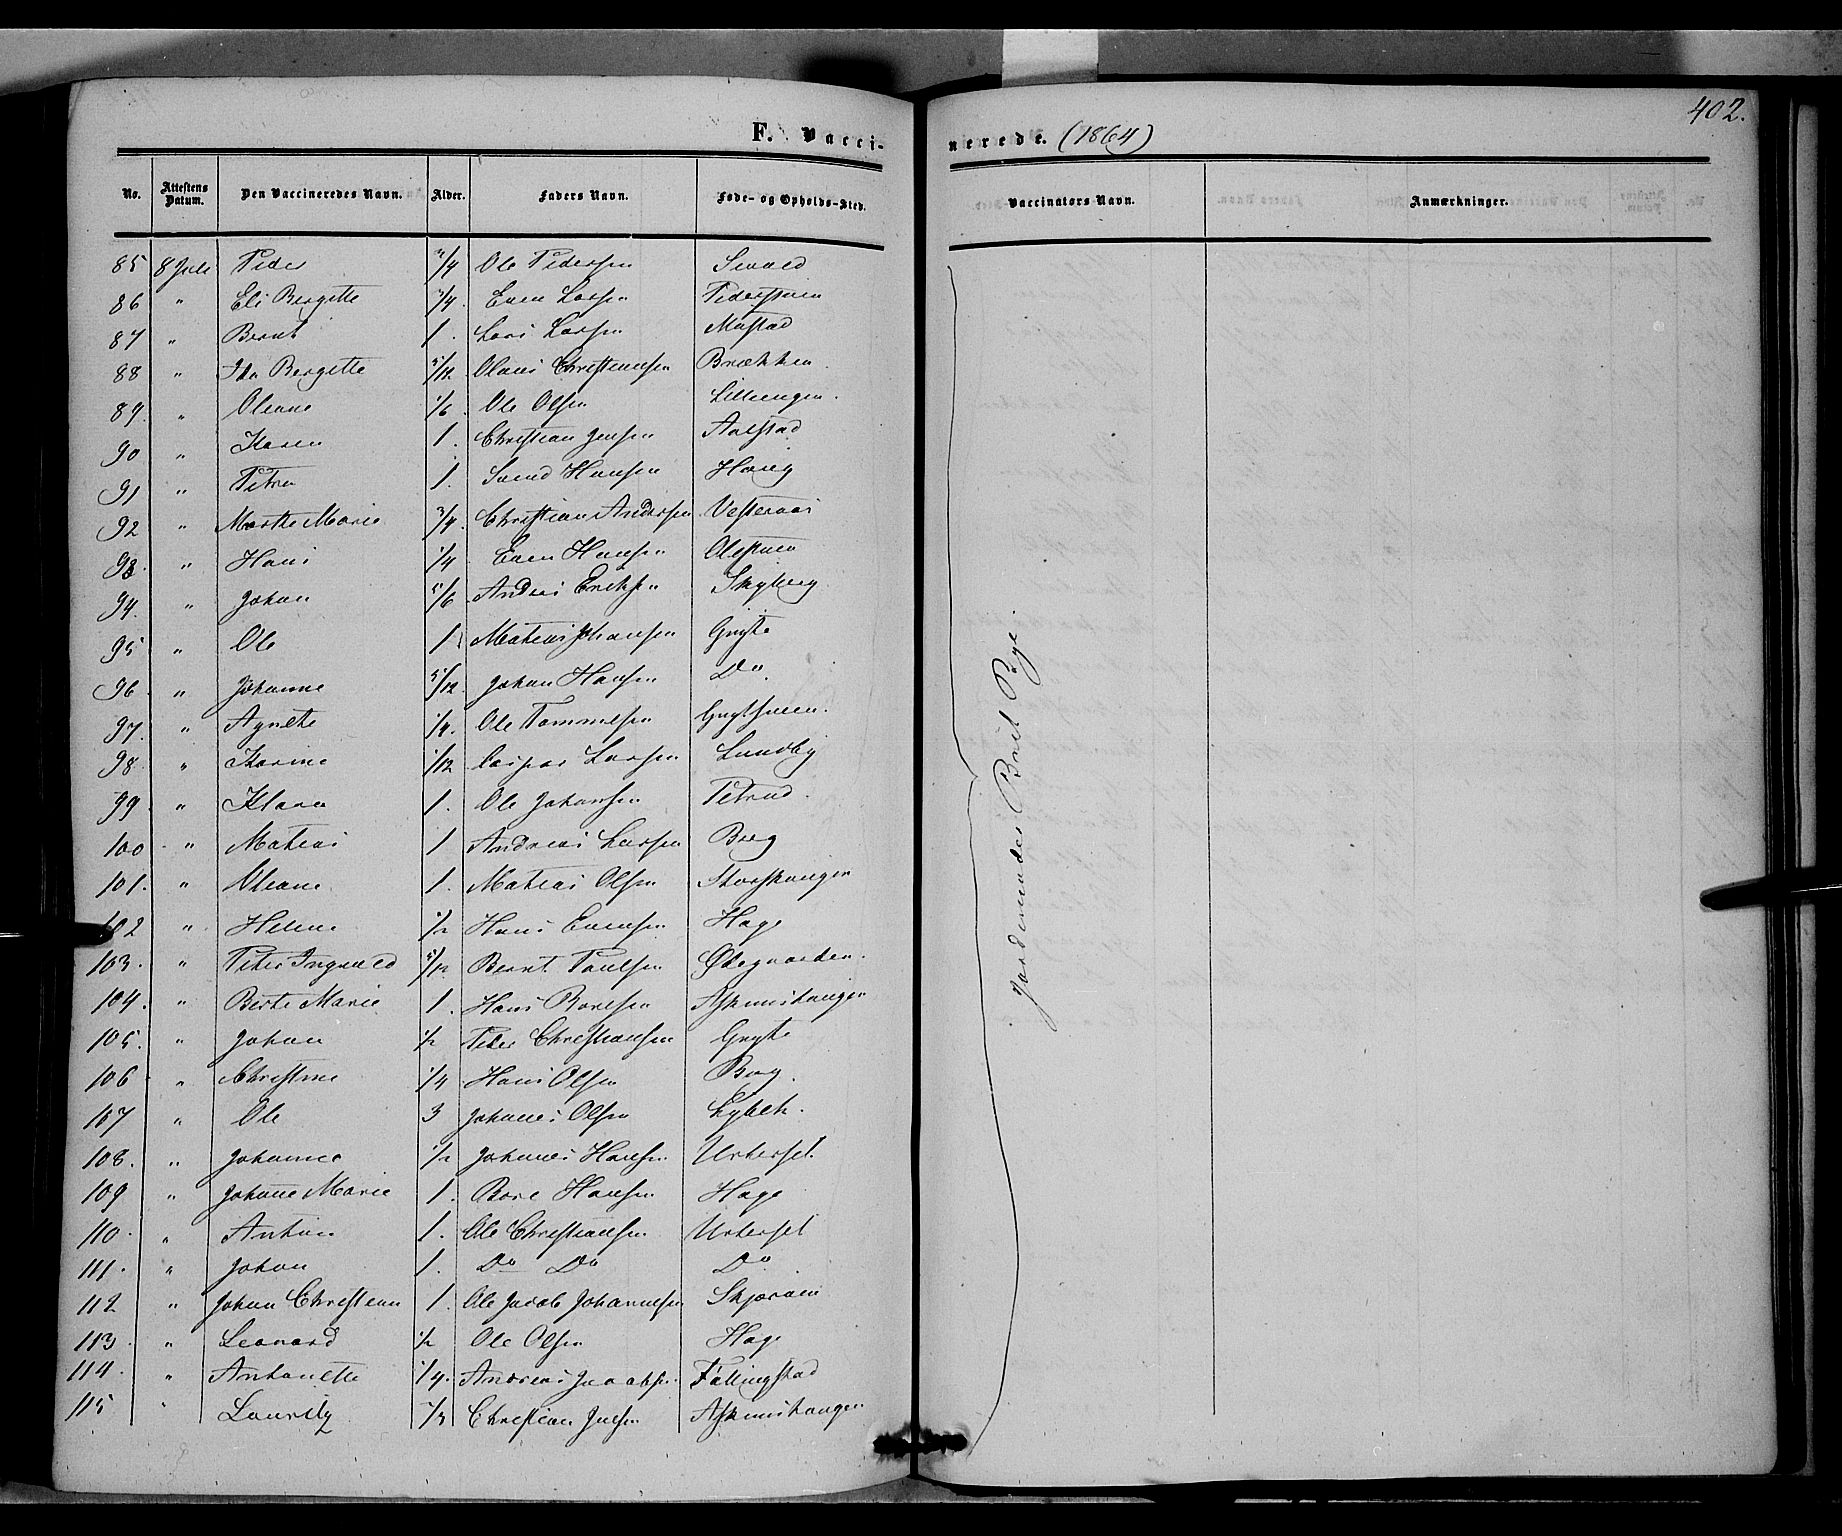 402.
F. Vacci- nerede. (1864)
No. Attestens Datum. Den Vaccineredes Navn. Alder. Faders Navn. Føde- og Opholds-Sted. Vaccinators Navn. Anmærkninger.
85 8 Juli Peder 3/4 Ole Pedersen
86 " Eli Bergitte 3/4. Even Larsen Pederstuen
87 " Bernt 1. Lars Larsen Mustad
88 " Ida Bergitte 5/12 Olaus Christiansen Brækken
89. " Oleane 1/6. Ole Olsen Lilleengen.
90 " Karen 1. Christian Jensen Aalstad
91 " Petra 1. Svend Hansen Haug
92 " Marthe Marie 3/4. Christian Andersen Vesteraas
93. " Hans 1/4 Even Hansen Olestuen
94. " Johan 5/6 Andreas Eriksen Skyberg
95 " Ole 1 Mathias Johansen Gryte
96 " Johanne 5/12. Johan Hansen Do
97. " Agnethe 1/4. Ole Tommesen Grythuen.
98. " Karine 1/12 Casper Larsen Lundby
99. " Klara 1. Ole Johansen Petrud.
100 " Mathias 1 Andreas Larsen Berg
101. " Oleane 1. Mathias Olsen Storhaugen
102 " Helene 1/2 Hans Evensen Hage
103. " Peter Ingvald 5/12 Bernt Paulsen Ødegaarden.
104. " Berte Marie 1. Hans Borresen Askimshaugen
105. " Johan 1/2 Peder Christiansen Gryte
106 " Christine 1/4 Hans Olsen Berg.
107 " Ole 3 Johanes Olsen Lybek.
108. " Johannes 1/2 Johanes Hansen Urterset
109 " Johane Marie 1. Bore Hansen Hage
110. " Anton 1. Ole Christiansen Urterset
111. " Johan 1. Do Do Do
112 " Johan Christian 1. Ole Jacob Johannesen
113 " Leonard 1/2 Ole Olsen Hage
114. " Antonette 1/4. Andreas Jacobsen Fællingstad
115 " Lauritz 1/3 Christian Julsen Askimshaugen
Jordemoder Berit Page.